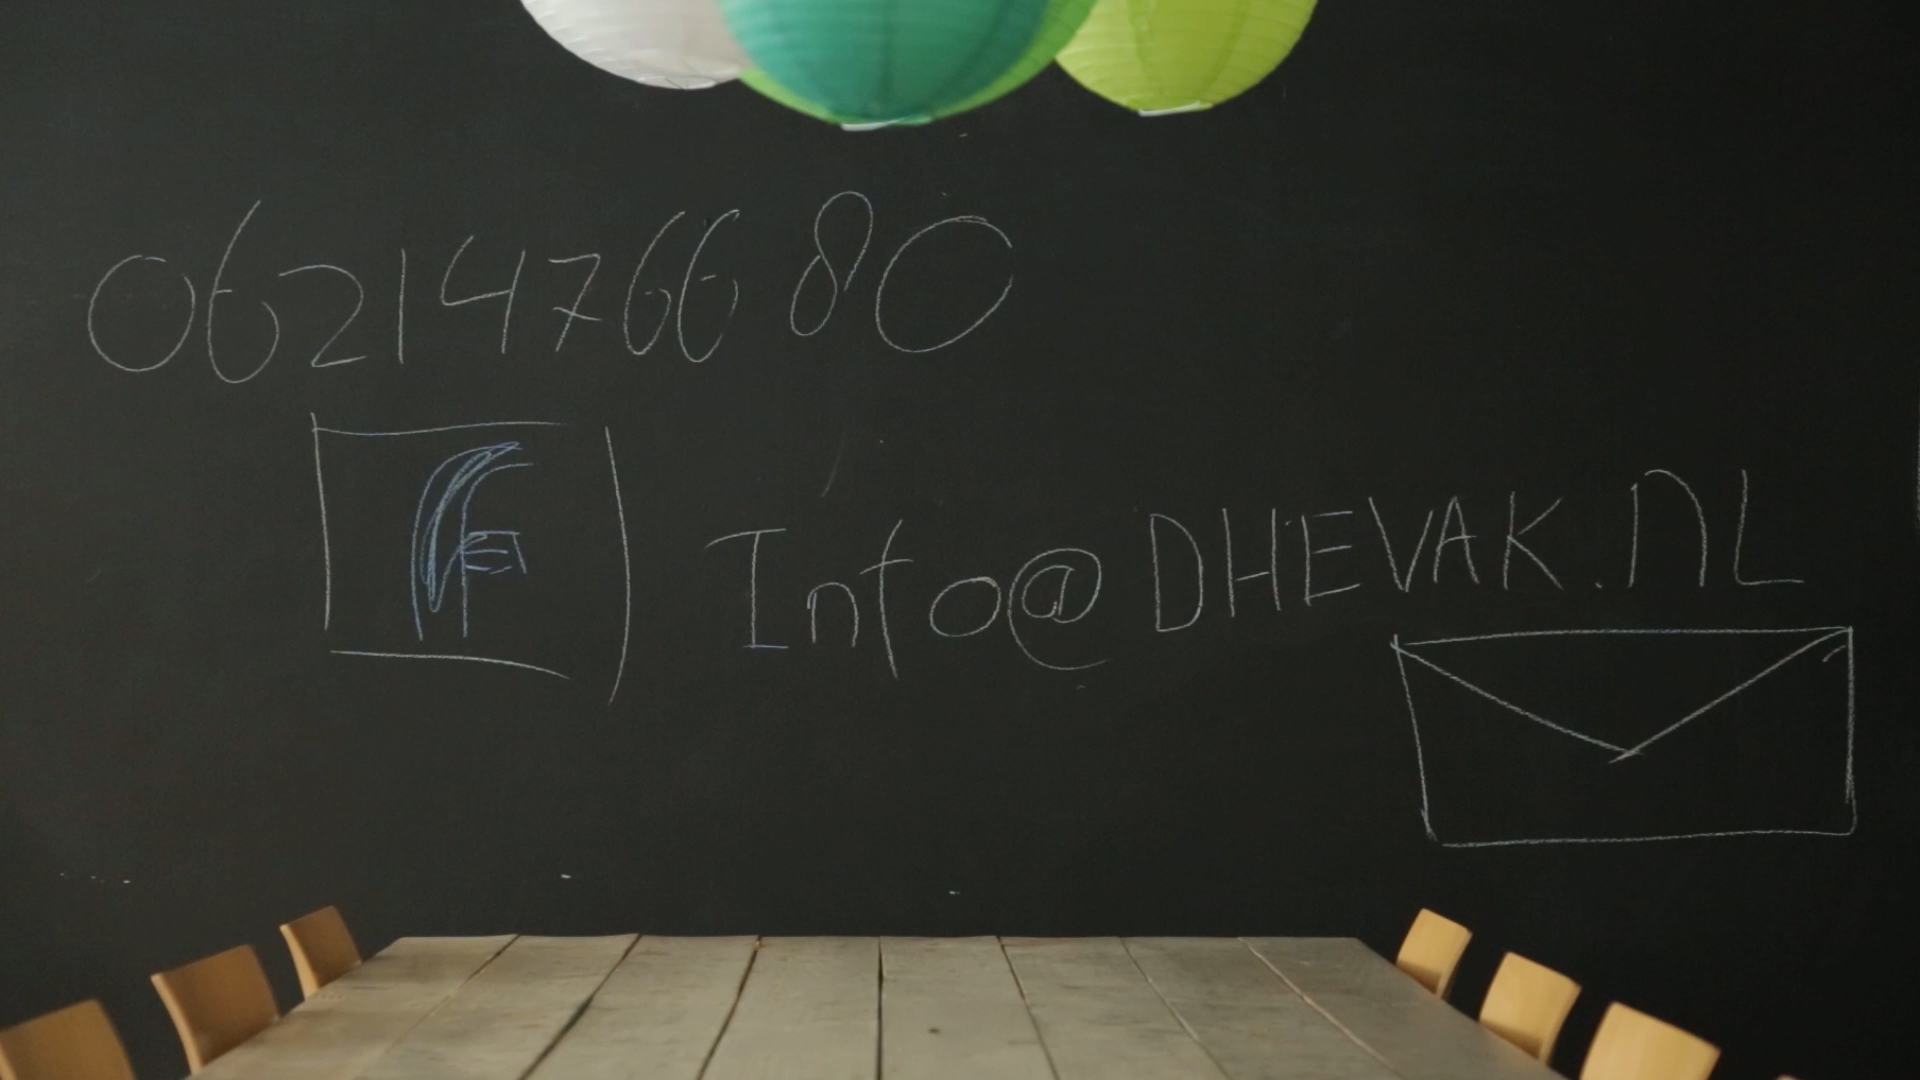 0621476680
f
Info@DHEVAK.nL